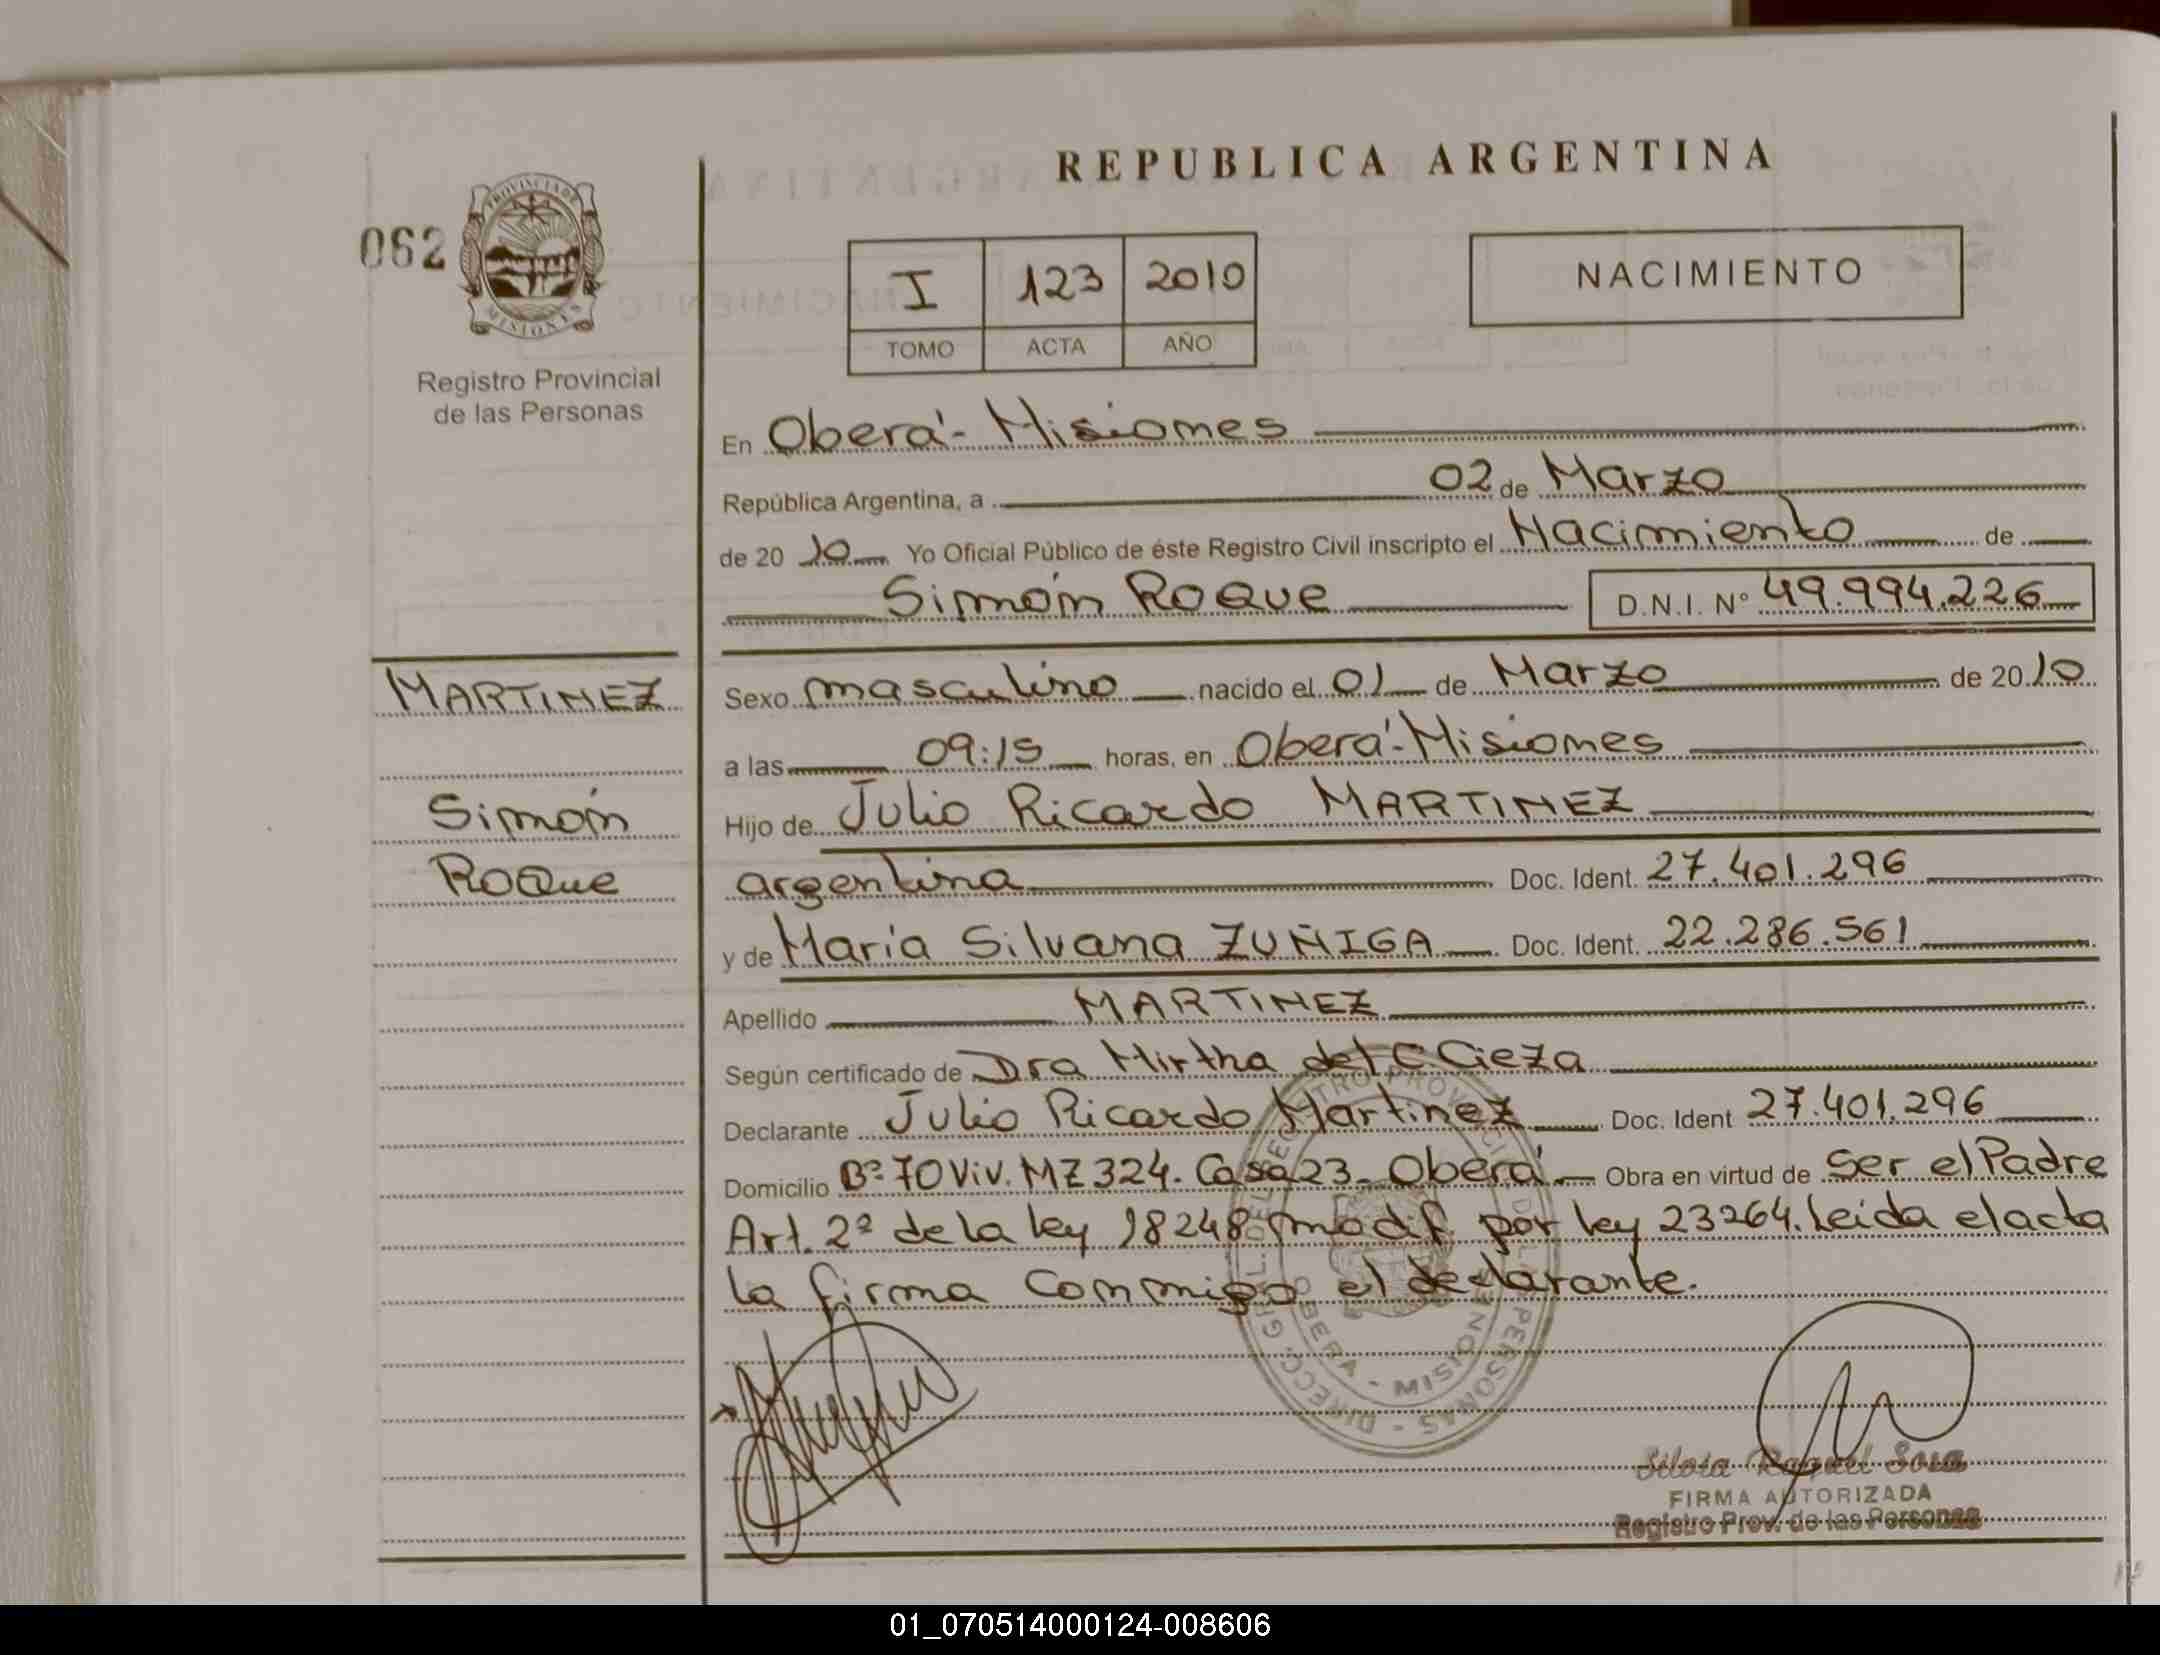 REPUBLICA ARGENTINA
062
PROVINCIA DE
MISIONES
Registro Provincial
de las Personas
I 123 2010
TOMO ACTA AÑO
NACIMIENTO
En Oberá - Misiones
República Argentina, a 02 de Marzo
de 20 10 Yo Oficial Público de éste Registro Civil inscripto el Nacimiento de
Simón Roque D.N.I. Nº 49.994.226
MARTINEZ
Simón
Roque
Sexo masculino nacido el 01 de Marzo de 20 10
a las 09:15 horas, en Oberá - Misiones
Hijo de Julio Ricardo MARTINEZ
argentina Doc. Ident. 27.401.296
y de María Silvana ZUÑIGA Doc. Ident. 22.286.561
Apellido MARTINEZ
Según certificado de Dra Mirtha del C Cieza
Declarante Julio Ricardo Martinez Doc. Ident 27.401.296
Domicilio Bº 70 Viv. MZ 324. Casa 23 - Oberá - Obra en virtud de Ser el Padre
Art. 2º de la ley 18248 modif por ley 23264. Leida el acta
la firma conmigo el declarante.
DIRECC. GRAL. DEL REGISTRO PROVINCIAL DE LAS PERSONAS
OBERA - MISIONES
Silvia Raquel Sosa
FIRMA AUTORIZADA
Registro Prov. de las Personas
01_070514000124-008606